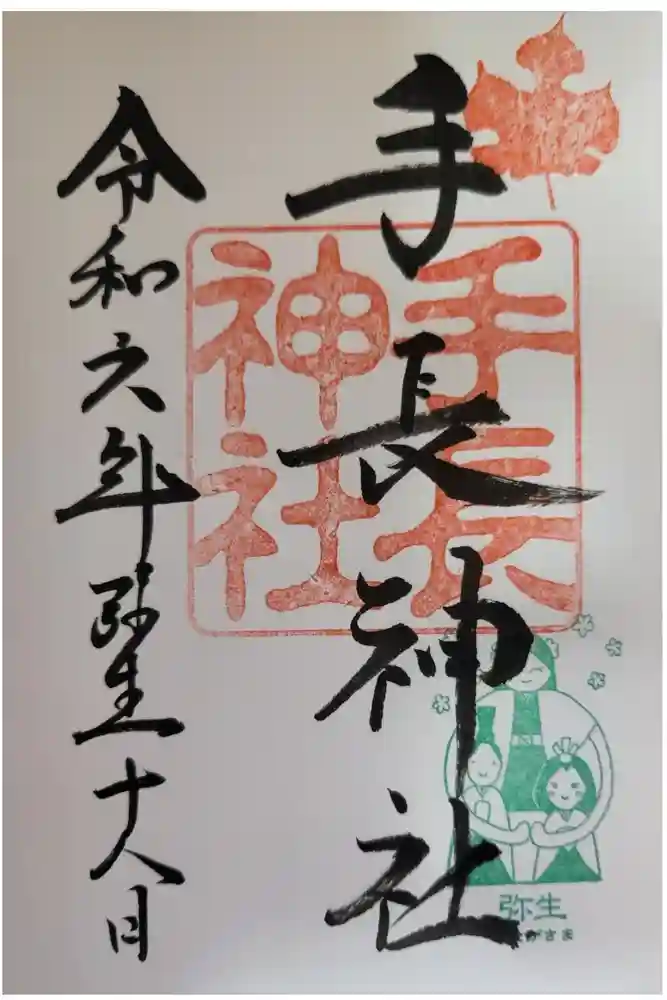 手長神社
手長
神社
令和六年弥生十八日
弥生